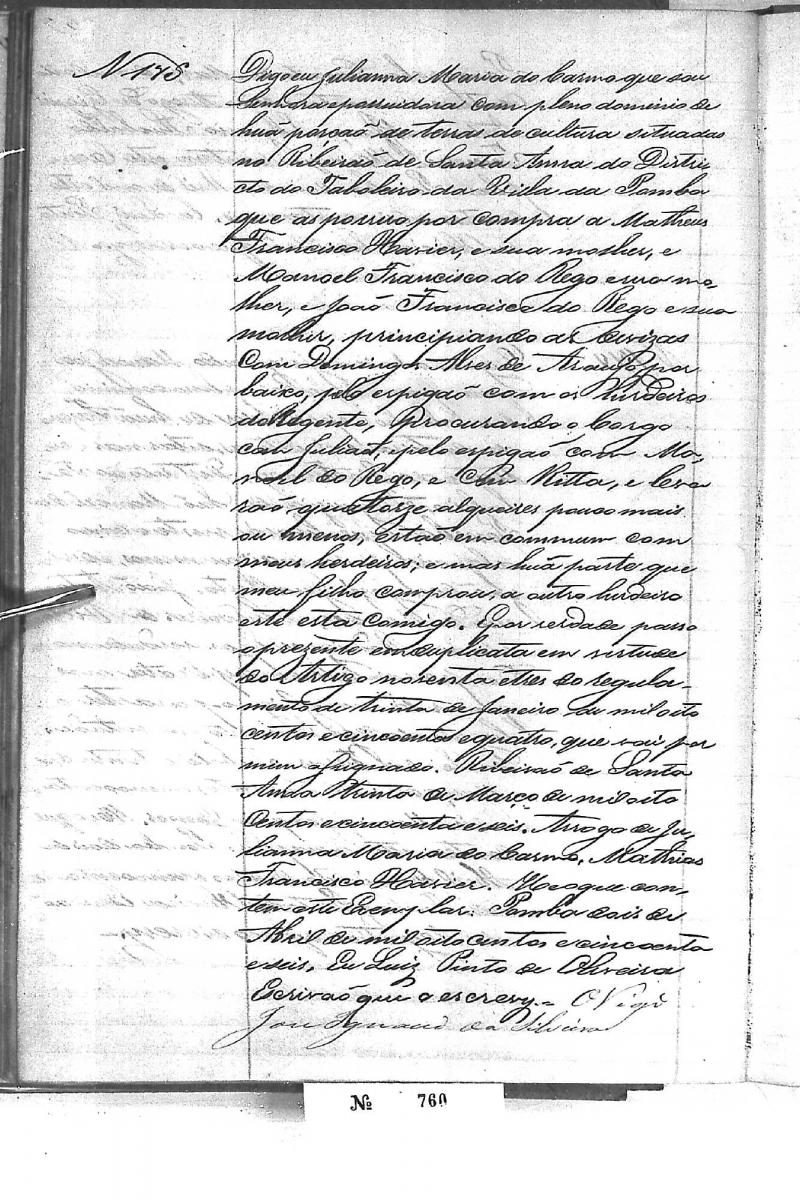 N 175
Digo eu Julianna Maria do Carmo que sou
Senhora e possuidora com pleno dominio de
huã porçaõ de terras de cultura situadas
no Ribeiraõ de Santa Anna do Distri
cto do Taboleiro da Villa da Pomba
que as possuo por compra a Matheus
Francisco Xavier, e sua molher, e
Manoel Francisco do Rego e sua mo-
lher, e Joaõ Francisco do Rego e sua
molher, principiando as devizas
com Domingos Alves de Araujo por
baixo, pelo espigaõ com os hirdeiros
do Regente, Procurando o Corgo
com Juliaõ, e pelo espigaõ com Ma-
noel do Rego, e com Ritta, e leva
raõ, quatorze alqueires pouco mais
ou menos, estaõ em commum com
meus herdeiros; e mas huã parte que
meu filho comprou, a outro hirdeiro
este esta comigo. E por verdade passo
o prezente em duplicata em virtude
do Artigo noventa e tres do regula-
mento de trinta de Janeiro de mil oito
centos e cincoenta e quatro, que vai por
mim assignado. Ribeiraõ de Santa
Anna trinta de Março de mil oito
centos e cincoenta e seis. Arrogo de Ju-
lianna Maria do Carmo, Mathias
Francisco Xavier. He o que con-
tem este Exemplar. Pomba dois de
Abril de mil oito centos e cincoenta
e seis, Eu Luiz Pinto de Oliveira
Escrivaõ que o escrevy. O Vigr.º
José Ignacio da Silveira
Nº 760